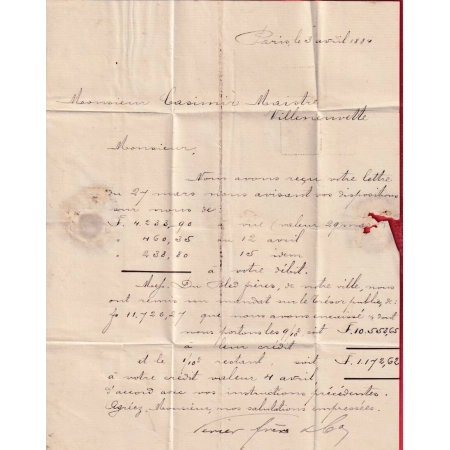 Paris, le 3 avril 188
Monsieur Casimir Maistre
Villeneuvette
Monsieur,
Nous avons reçu votre lettre
du 27 mars nous avisant vos dispositions
sur nous de:
F. 4233,90 à vue (valeur 29 mars
" 460,35 au 12 avril
" 238,80 " 15 idem
à votre débit.
Mess. Du frères, de notre ville, nous
ont remis un mandat sur le trésor public, de:
fs 11.726,27 que nous avons encaissé & dont
nous portons les 9/10 soit F. 10.553,65
à leur crédit
et le 1/10 restent, soit F. 1.172,62
à votre crédit valeur 4 avril
d'accord avec vos instructions précédentes.
Agréez, Monsieur, nos salutations empressées.
frères & Co